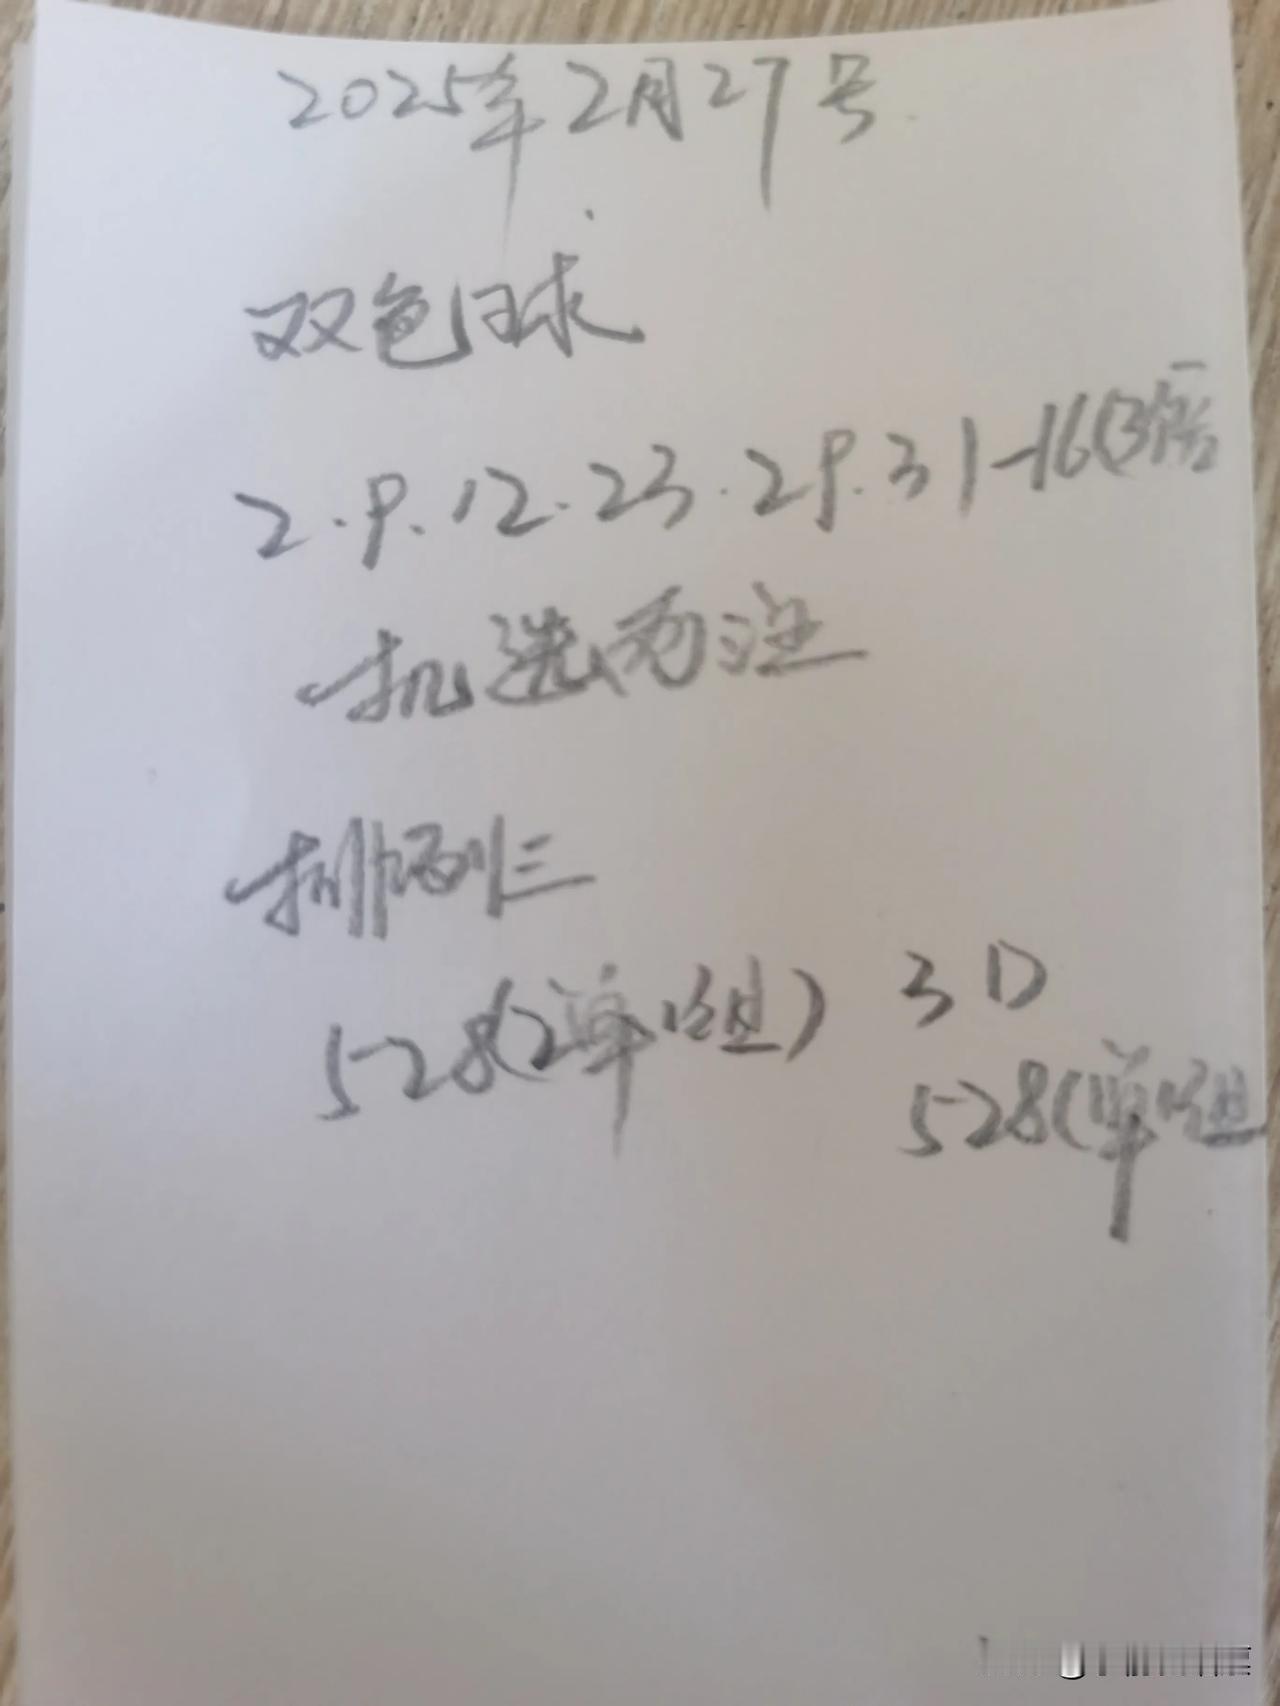 2025年2月27号
双色球
2.9.12.23.29.31-16(3倍
机选两注
排列三
528(2单1组)
3D
528(单1组